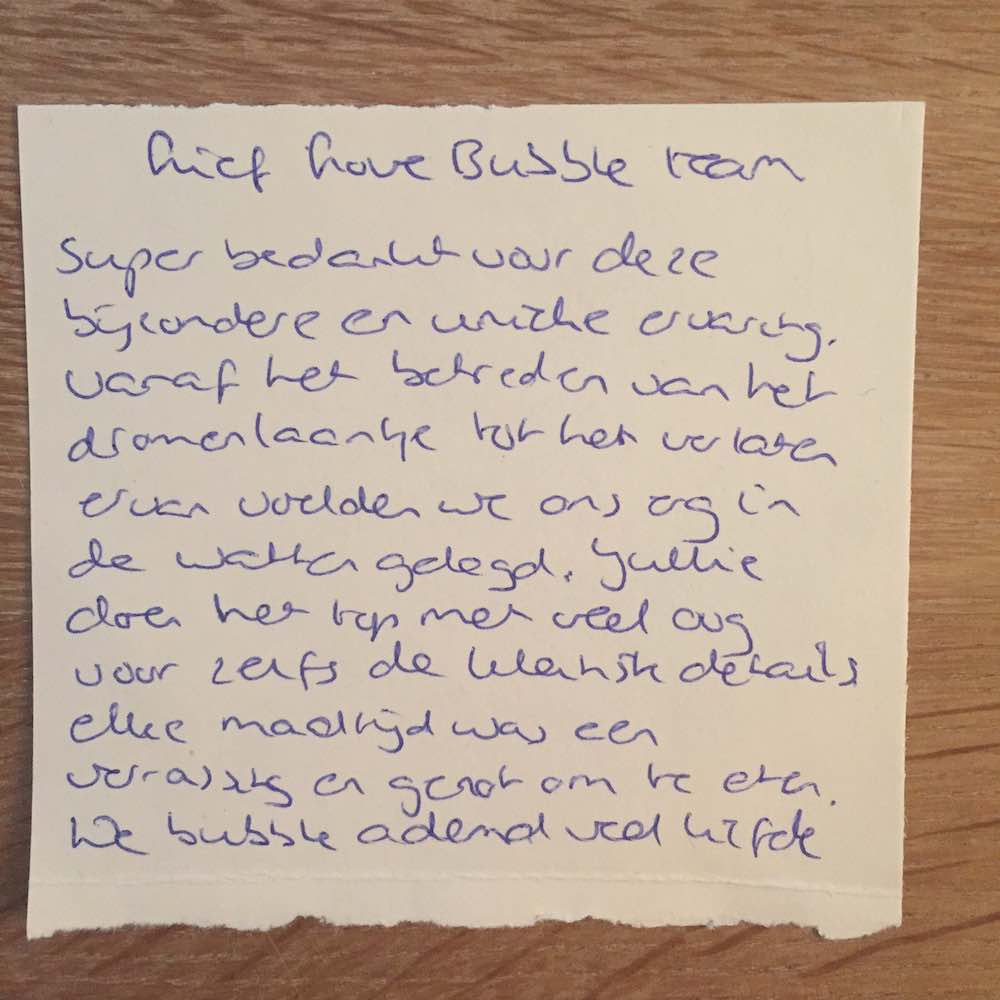 Lief Love Bubble team
Super bedankt voor deze
bijzondere en unieke ervaring.
Vanaf het betreden van het
dromenlaantje tot het verlaten
ervan voelden we ons erg in
de watten gelegd. Jullie
doen het top met veel oog
voor zelfs de kleinste details
elke maaltijd was een
verrassing en genot om te eten.
De bubble ademd veel liefde